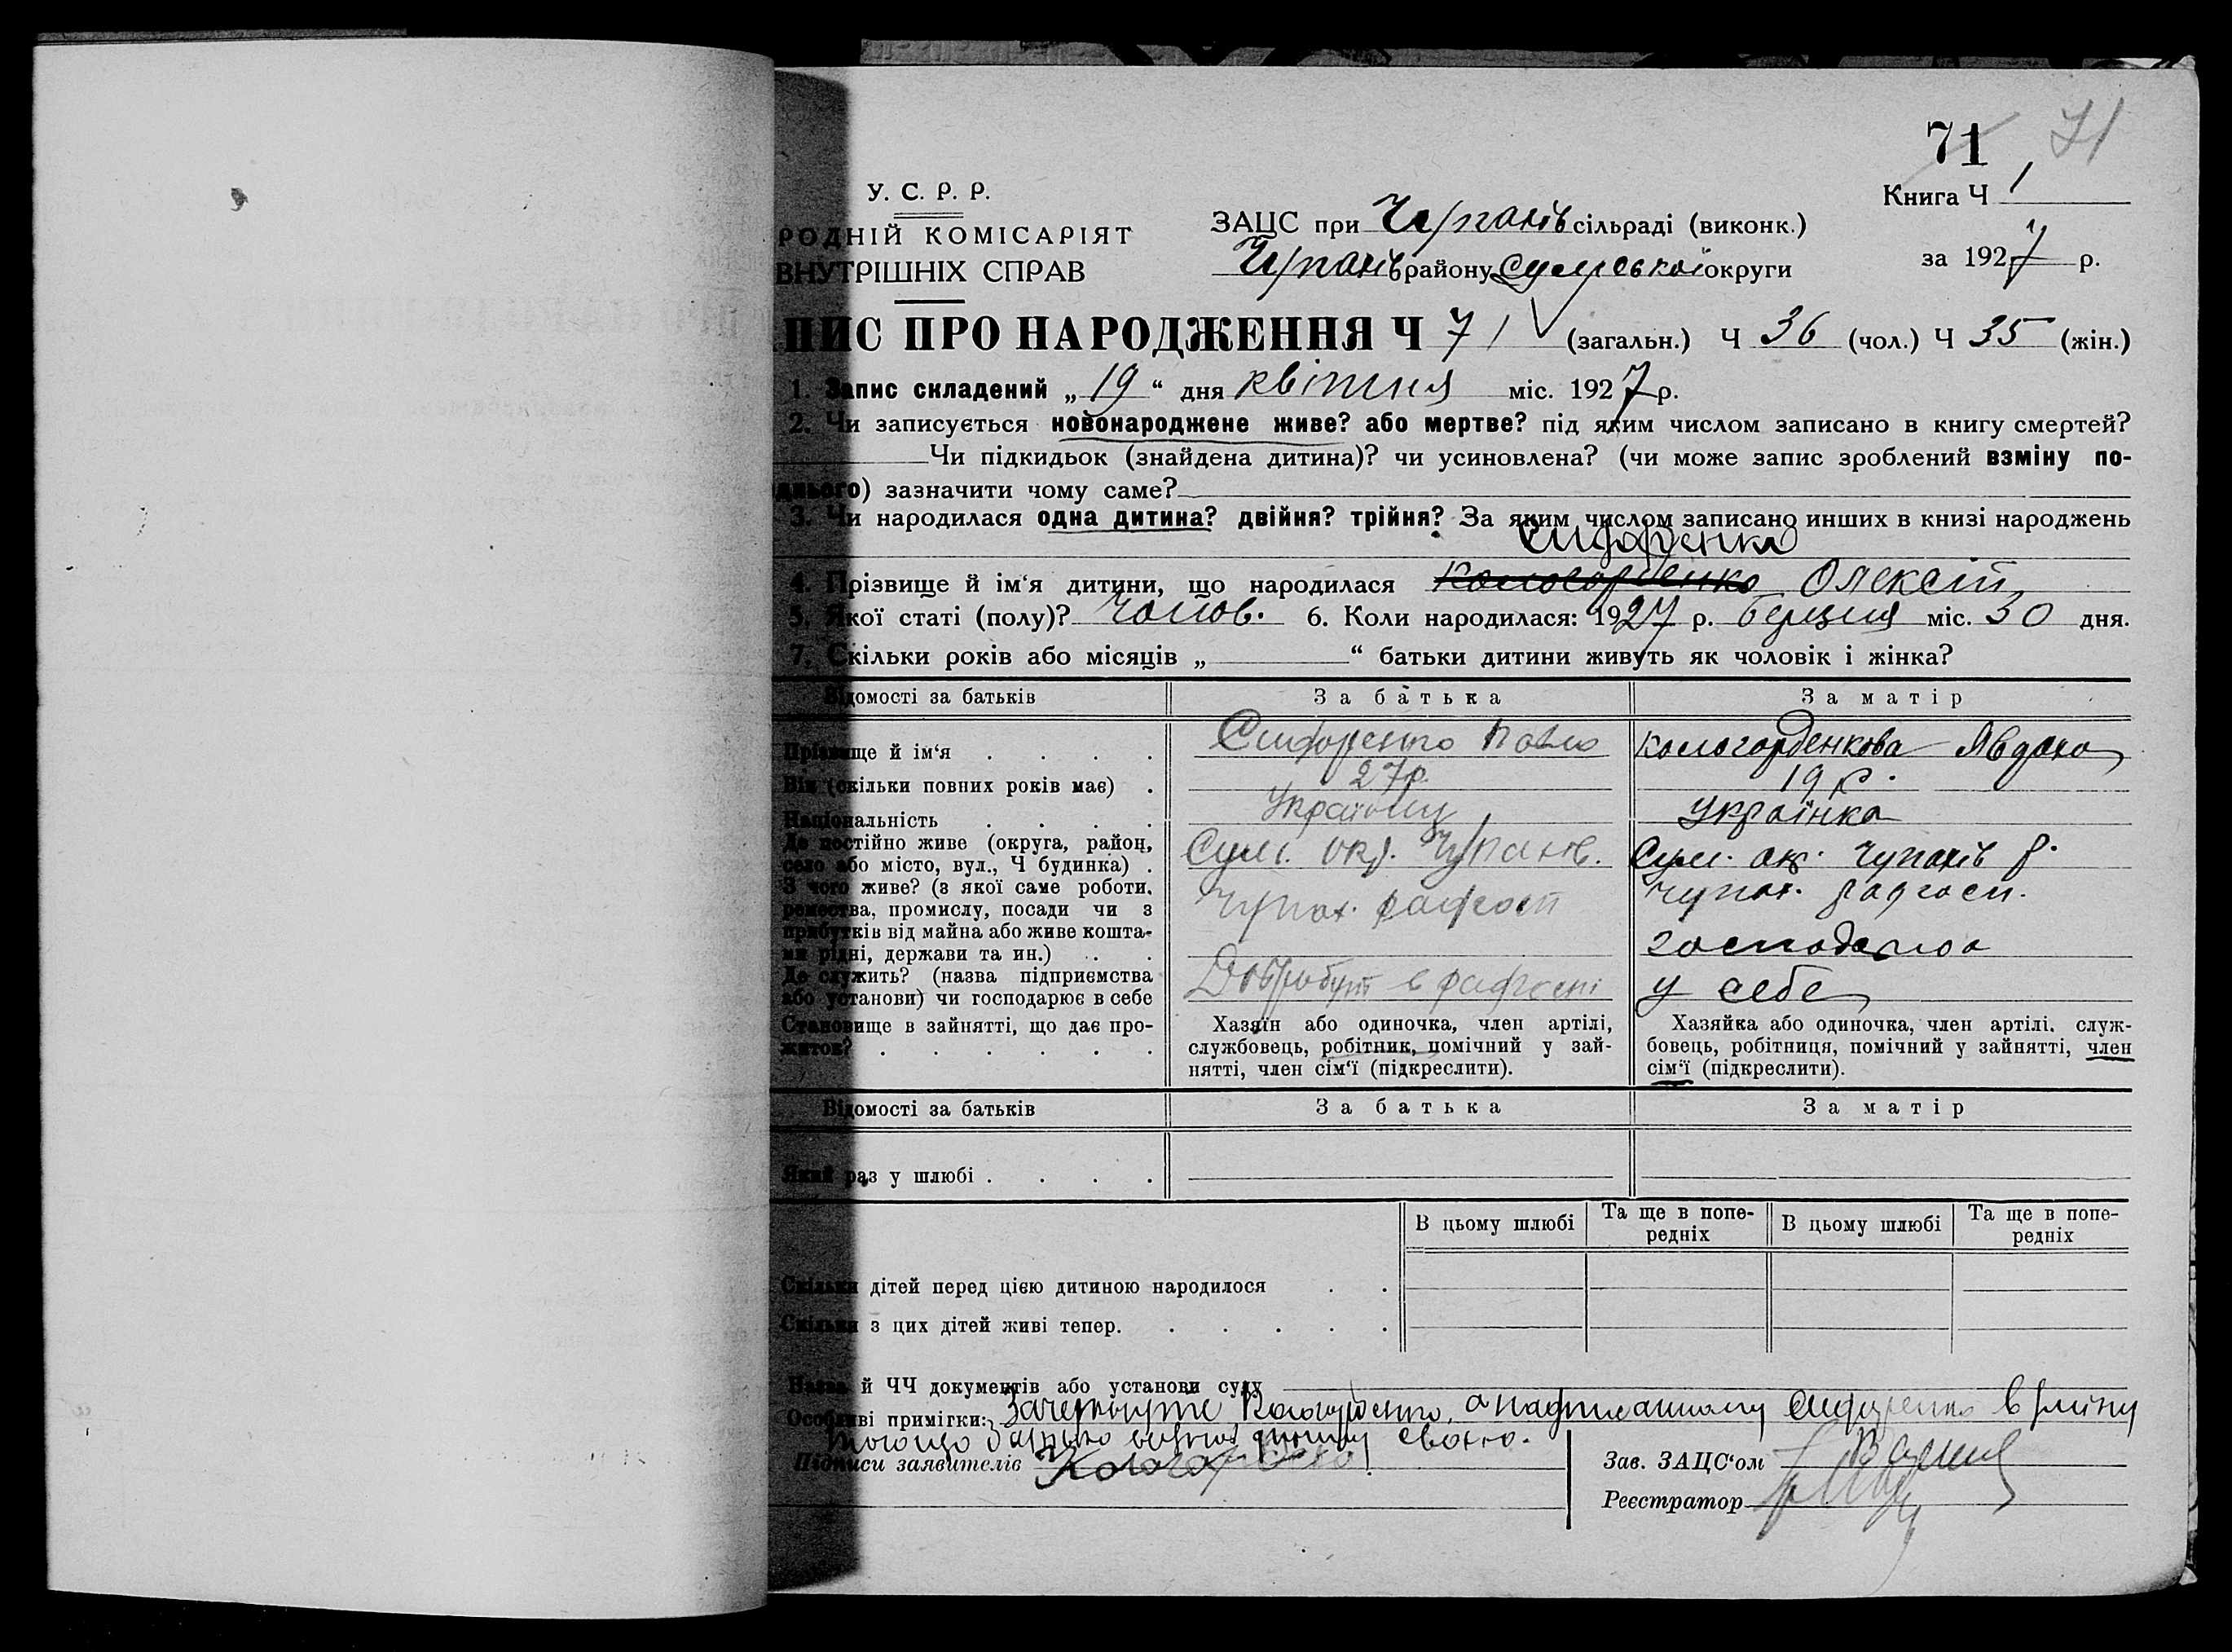 71 71
Книга Ч 1
У. С. Р. Р.
РОДНІЙ КОМІСАРІЯТ
ВНУТРІШНІХ СПРАВ
ЗАЦС при Чупахів сільраді (виконк.)
Чупахів району Сумської округи
за 1927 р.
ПИС ПРО НАРОДЖЕННЯ Ч 71 (загальн.) Ч 36 (чол.) Ч 35 (жін.)
1. Запис складений „ 19 “ дня квітня міс. 1927 р.
2. Чи записується новонароджене живе? або мертве? під яким числом записано в книгу смертей?
Чи підкидьок (знайдена дитина)? чи усиновлена? (чи може запис зроблений взміну по-
днього) зазначити чому саме?
3. Чи народилася одна дитина? двійня? трійня? За яким числом записано инших в книзі народжень
Сидоренко
4. Прізвище й ім‘я дитини, що народилася Кологорбенко Олексій
5. Якої статі (полу)? Чолов. 6. Коли народилася: 1927 р. березня міс. 30 дня.
7. Скільки років або місяців „ “ батьки дитини живуть як чоловік і жінка?
Відомості за батьків За батька За матір
Прізвище й ім‘я . . . . Сидоренко Павло Кологорбенкова Явдоха
Вік (скільки повних років має) . 27р. 19 р.
Національність . . . . Українец Українка
Де постійно живе (округа, район,
село або місто, вул., Ч будинка) . Сум. окр. Чупахів. Сум. ок. Чупахів р.
З чого живе? (з якої саме роботи,
ремества, промислу, посади чи з Чупах. радгосп Чупах. радгосп.
прибутків від майна або живе кошта-
ми рідні, держави та ин.) . .
Де служить? (назва підприємства
або установи) чи господарює в себе у себе
Становище в зайнятті, що дає про-
житток? . . . . . .
Хазяїн або одиночка, член артілі,
службовець, робітник, помічний у зай-
нятті, член сім‘ї (підкреслити).
Хазяйка або одиночка, член артілі. служ-
бовець, робітниця, помічний у зайнятті, член
сім‘ї (підкреслити).
Відомості за батьків За батька За матір
Який раз у шлюбі . . . .
В цьому шлюбі Та ще в попе-
редніх В цьому шлюбі Та ще в попе-
редніх
Скільки дітей перед цією дитиною народилося . .
Скільки з цих дітей живі тепер. . . . . .
Назва й ЧЧ документів або установи суду
Особливі примітки: Кологорбенко, а надписанному Сидоренко в зміну
того що дитину своєю.
Підписи заявителів
Зав. ЗАЦС‘ом
Реєстратор